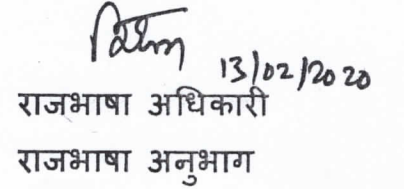 13/02/2020
राजभाषा अधिकारी
राजभाषा अनुभाग